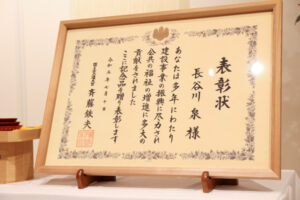 表彰状
長谷川 泉 様
あなたは多年にわたり
建設事業の振興に尽力され
公共の福祉の増進に多大の
貢献をされました
ここに記念品を贈り表彰します
令和五年七月十日
国土交通大臣 斉藤鉄夫